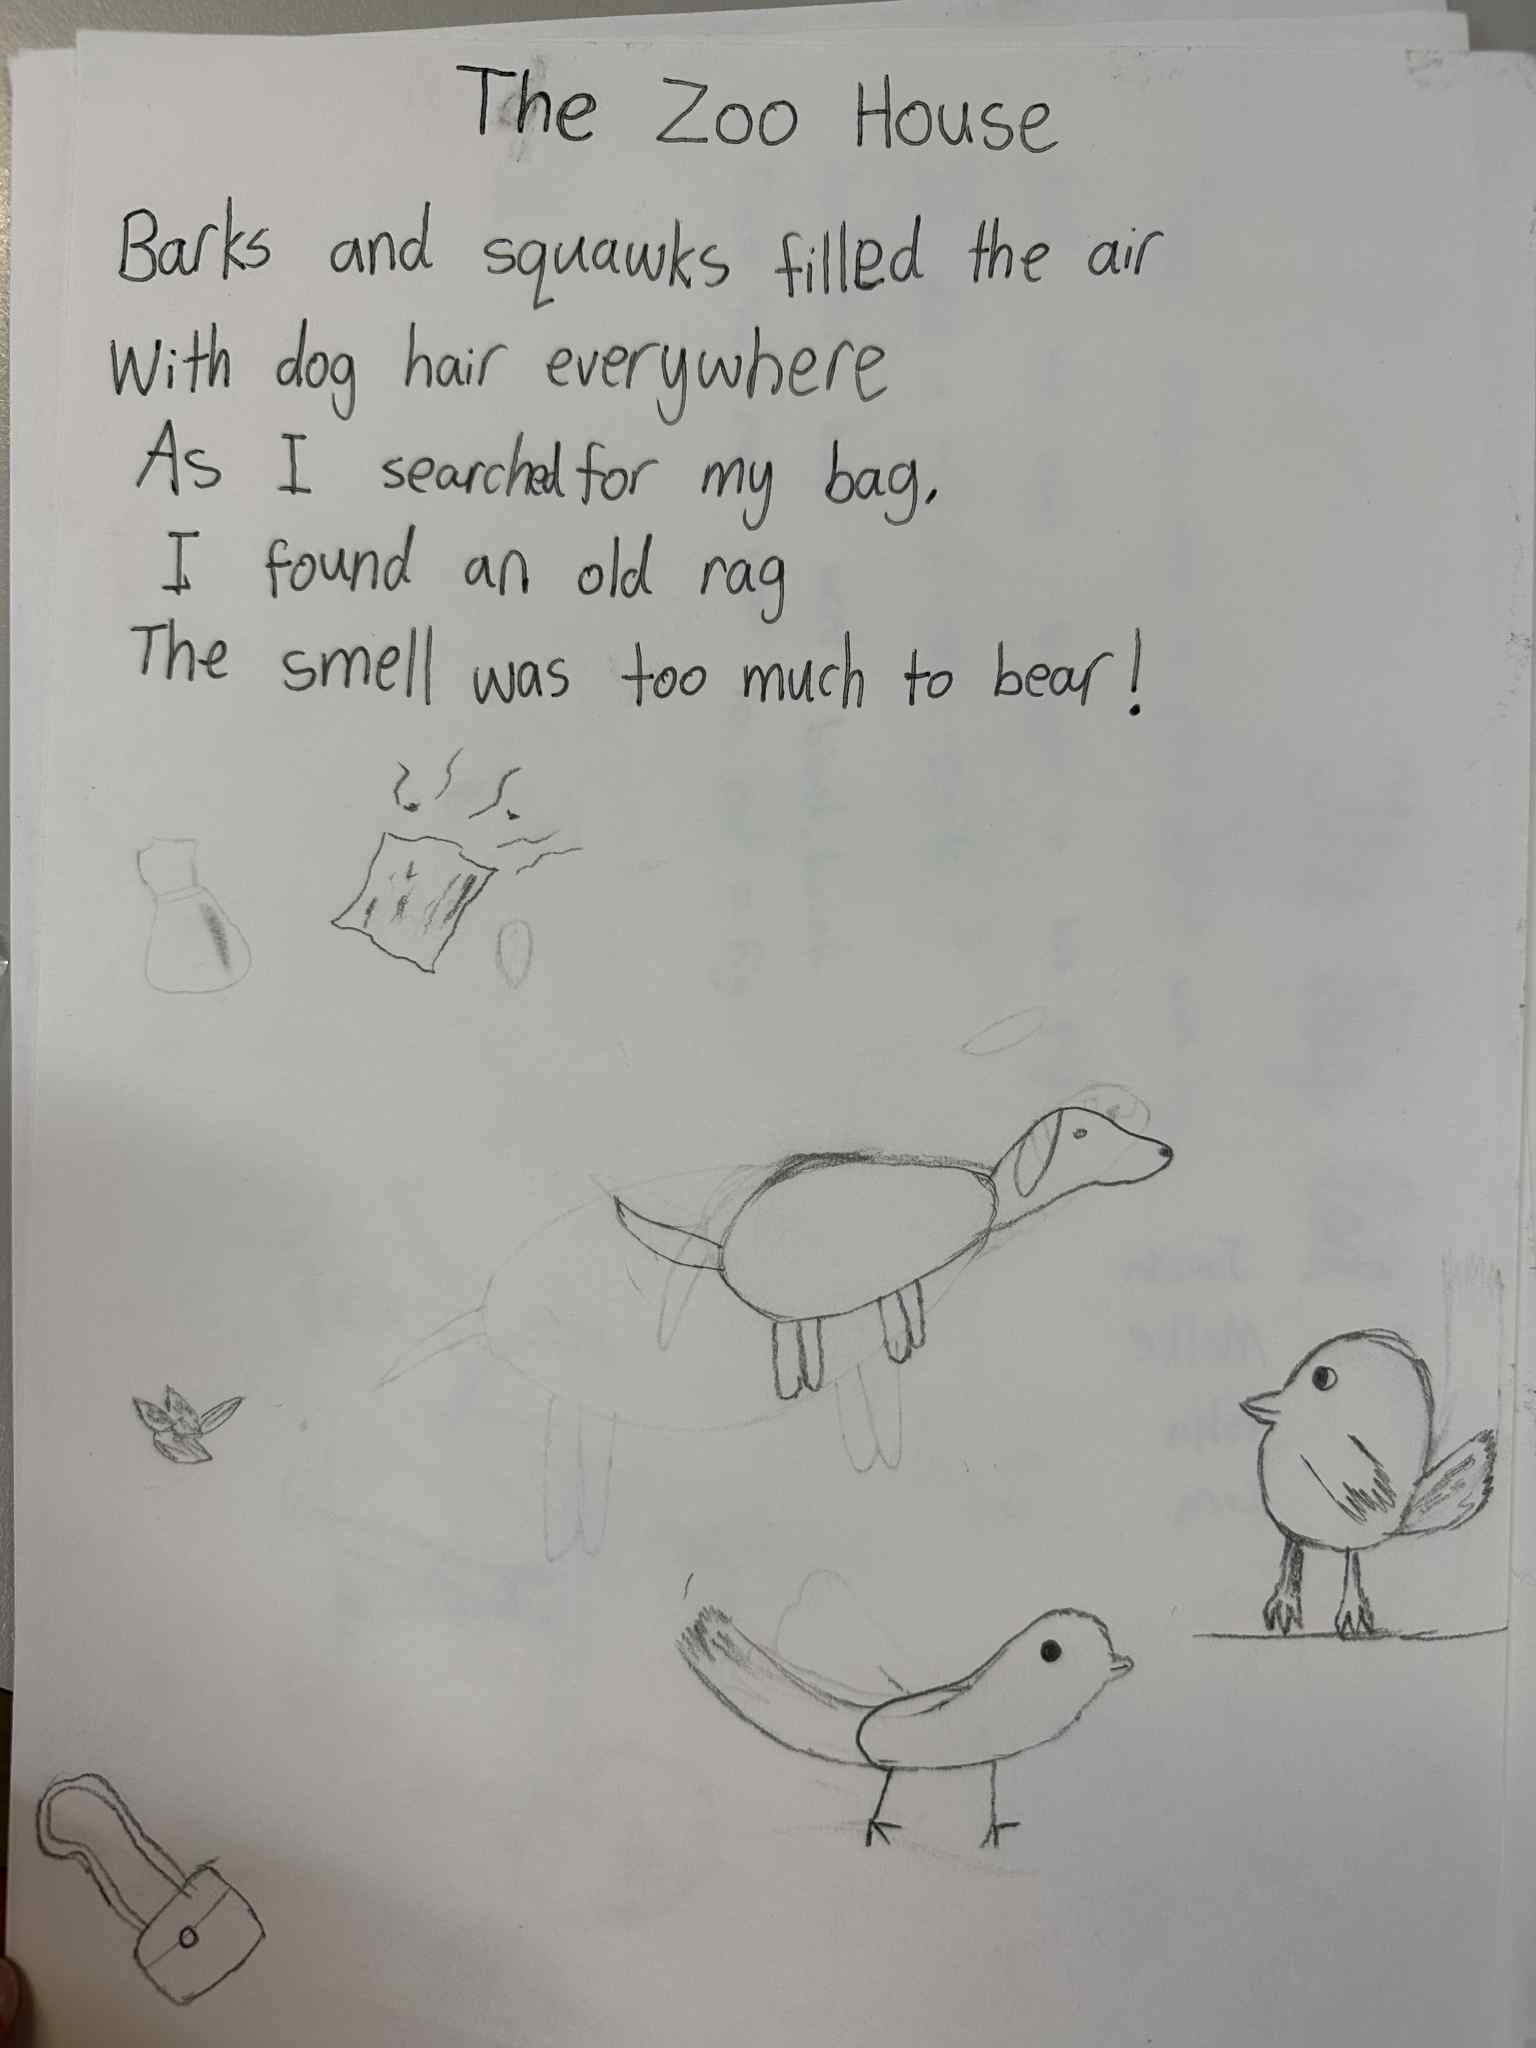 The Zoo House
Barks and squawks filled the air
With dog hair everywhere
As I searched for my bag,
I found an old rag
The smell was too much to bear!